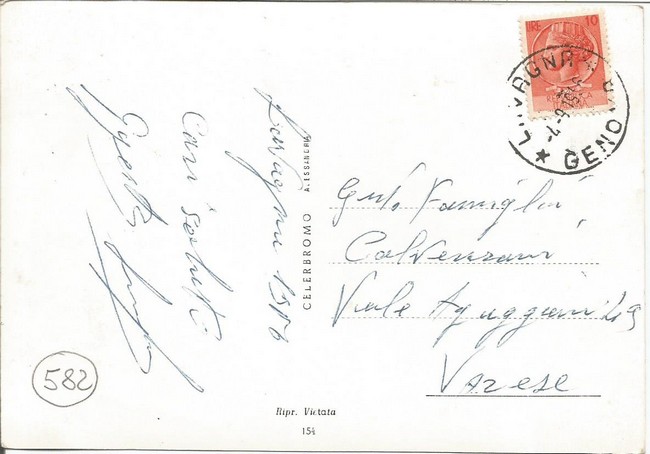 LIRE 10
LAVAGNA * GENOVA *
Lavagna 1956
Cari saluti
CELERBROMO
Gent. Famiglia
Calvenzani
Viale Aguggiari
Varese
582
Ripr. Vietata
154